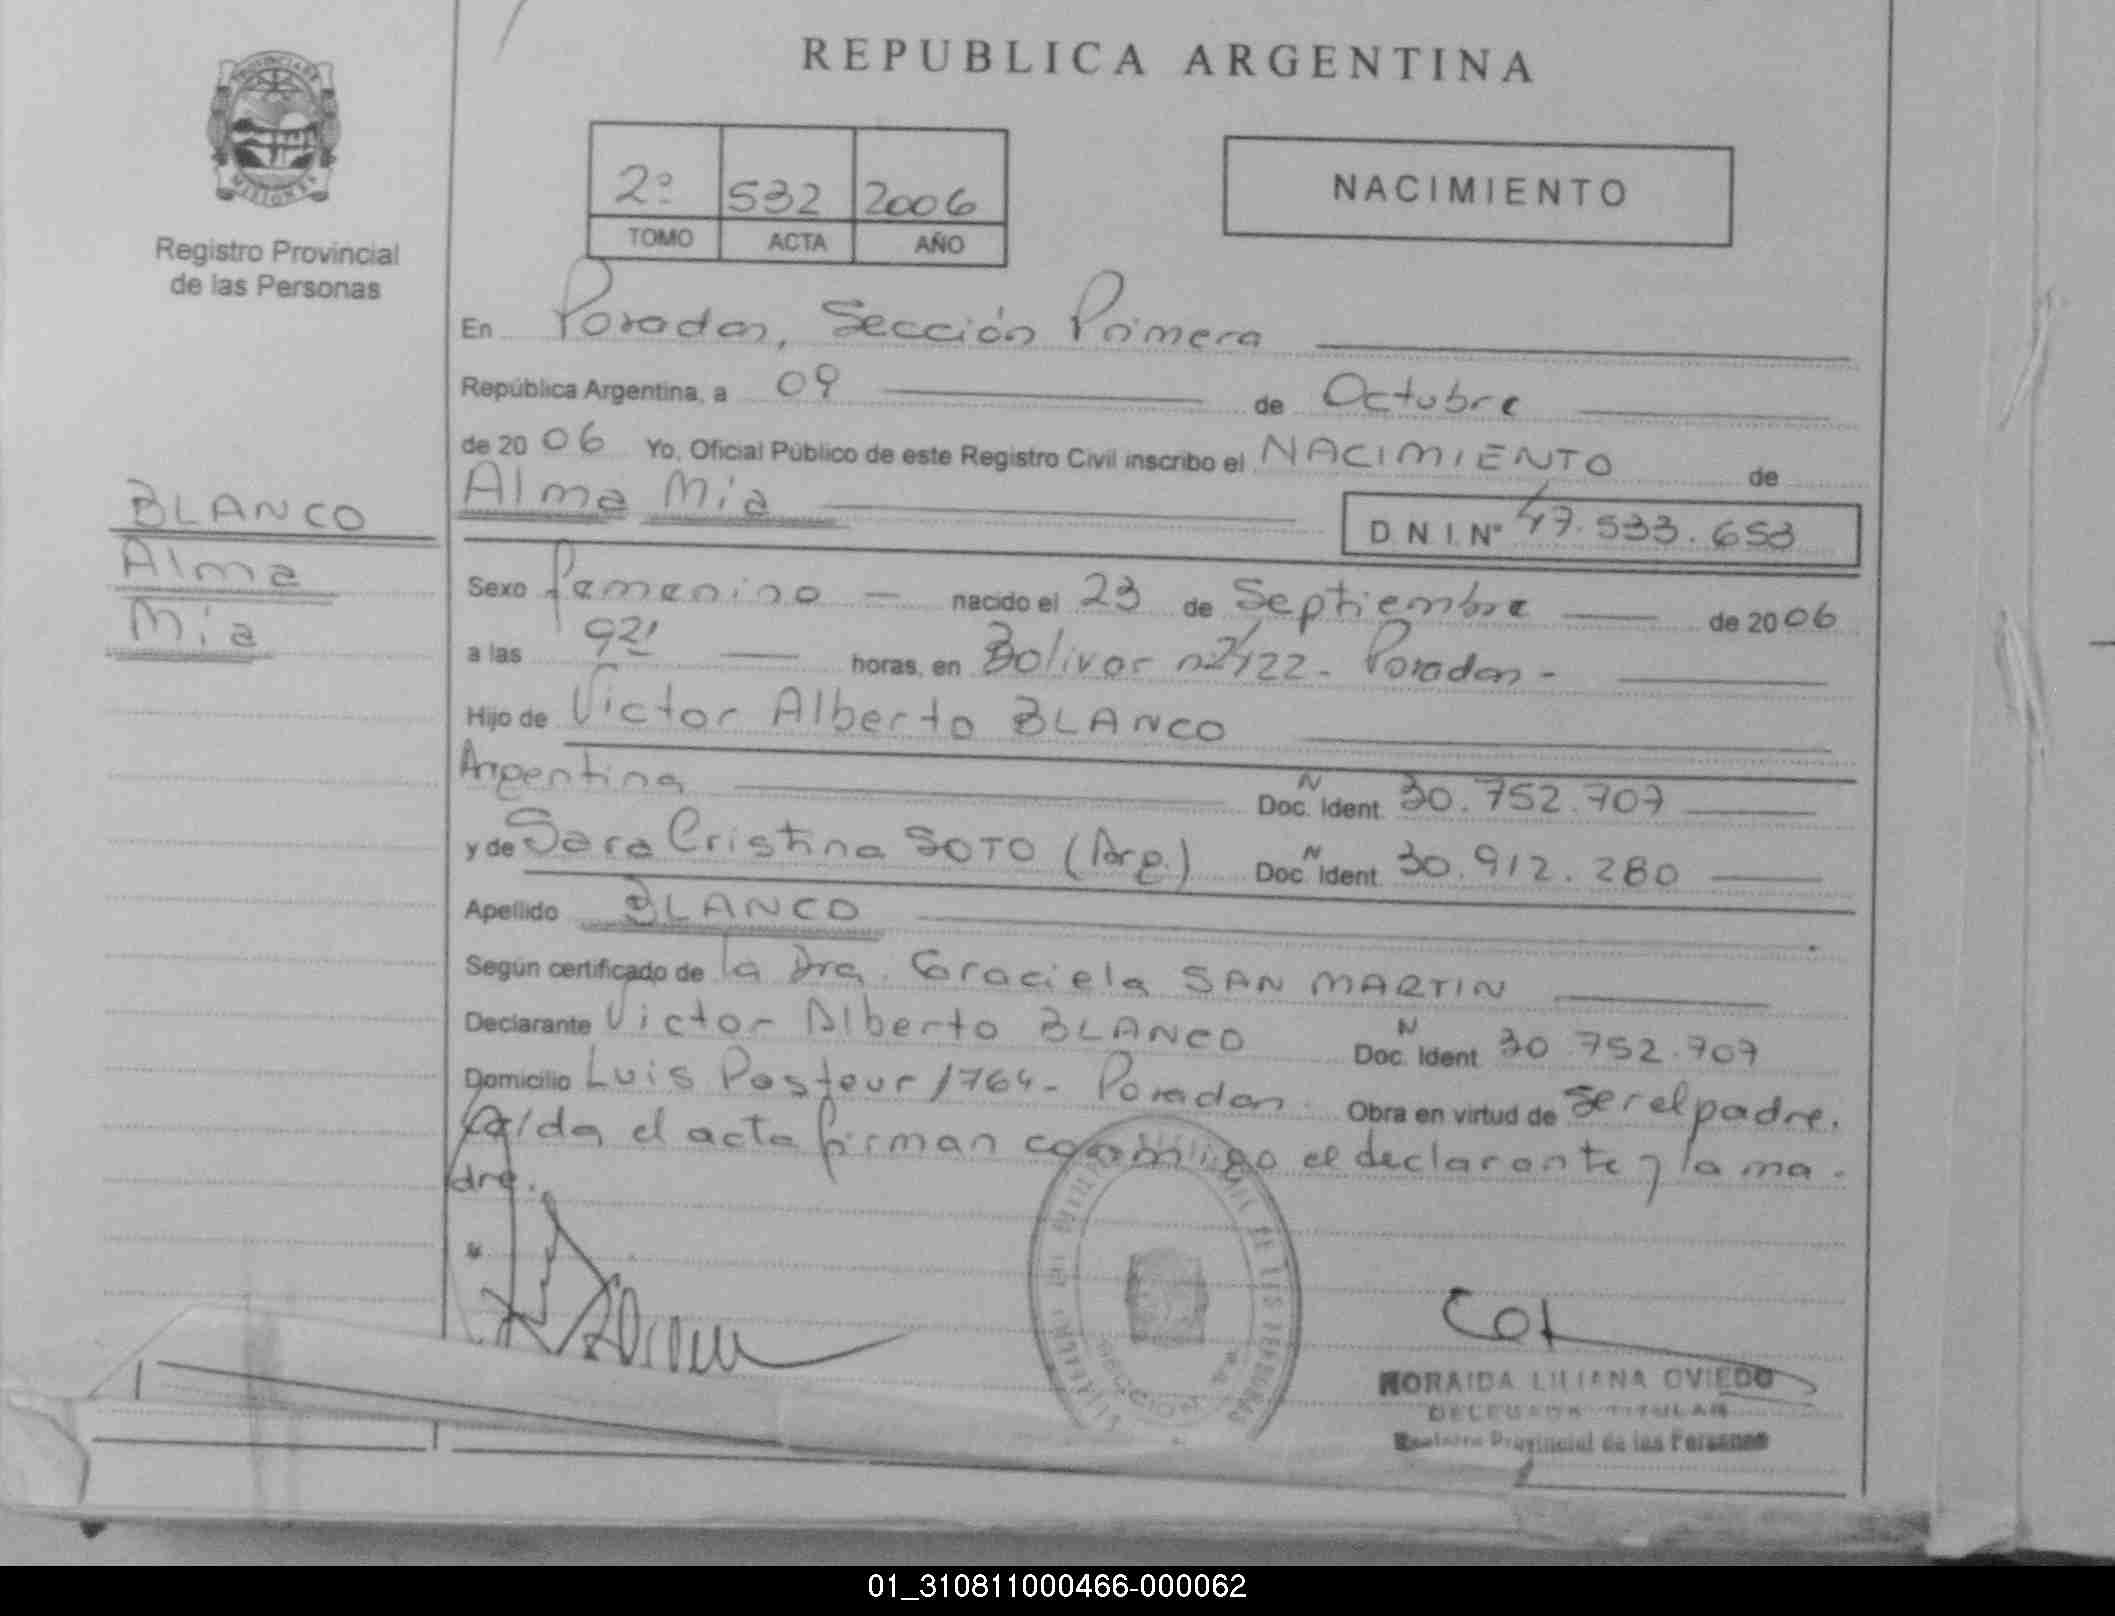 REPUBLICA ARGENTINA
PROVINCIA DE
MISIONES
Registro Provincial
de las Personas
2º 532 2006
TOMO ACTA AÑO
NACIMIENTO
En Posadas, Sección Primera
República Argentina, a 09 de Octubre
de 20 06 Yo, Oficial Público de este Registro Civil inscribo el NACIMIENTO de
Alma Mía D N I. Nº 47.533.653
BLANCO
Alma
Mía
Sexo femenino nacido el 23 de Septiembre de 20 06
a las 921 horas, en Bolivar nº 2422 - Posadas -
Hijo de Victor Alberto BLANCO
Argentina Doc. N Ident. 30.752.707
y de Sara Cristina SOTO (Arg.) Doc. N Ident. 30.912.280
Apellido BLANCO
Según certificado de la Dra. Graciela SAN MARTIN
Declarante Victor Alberto BLANCO Doc. N Ident. 30.752.707
Domicilio Luis Pasteur 1764 - Posadas. Obra en virtud de ser el padre.
Leída el acta firman conmigo el declarante y la ma-
dre.
SECCION 1ra
NORAIDA LILIANA OVIEDO
DELEGADA TITULAR
Registro Provincial de las Personas
01_310811000466-000062